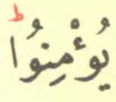 يُؤْمِنُوا